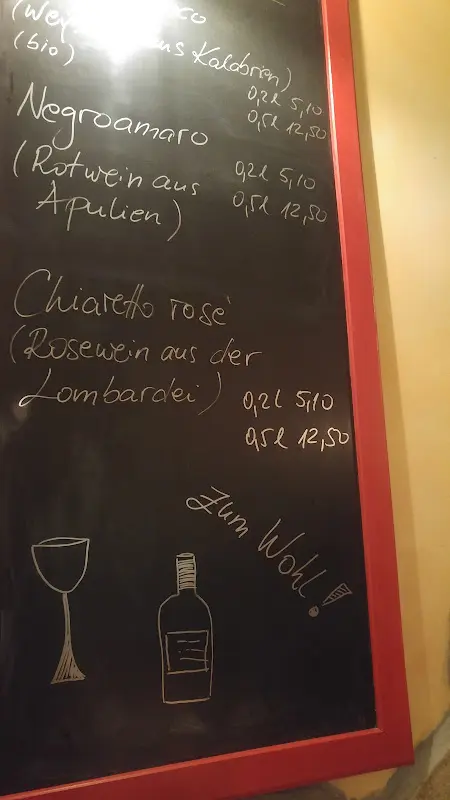 aus Kalabrien)
(bio)
0,2l 5,10
0,5l 12,50
Negroamaro
(Rotwein aus
Apulien)
0,2l 5,10
0,5l 12,50
Chiaretto rosé
(Rosewein aus der
Lombardei)
0,2l 5,10
0,5l 12,50
Zum Wohl!